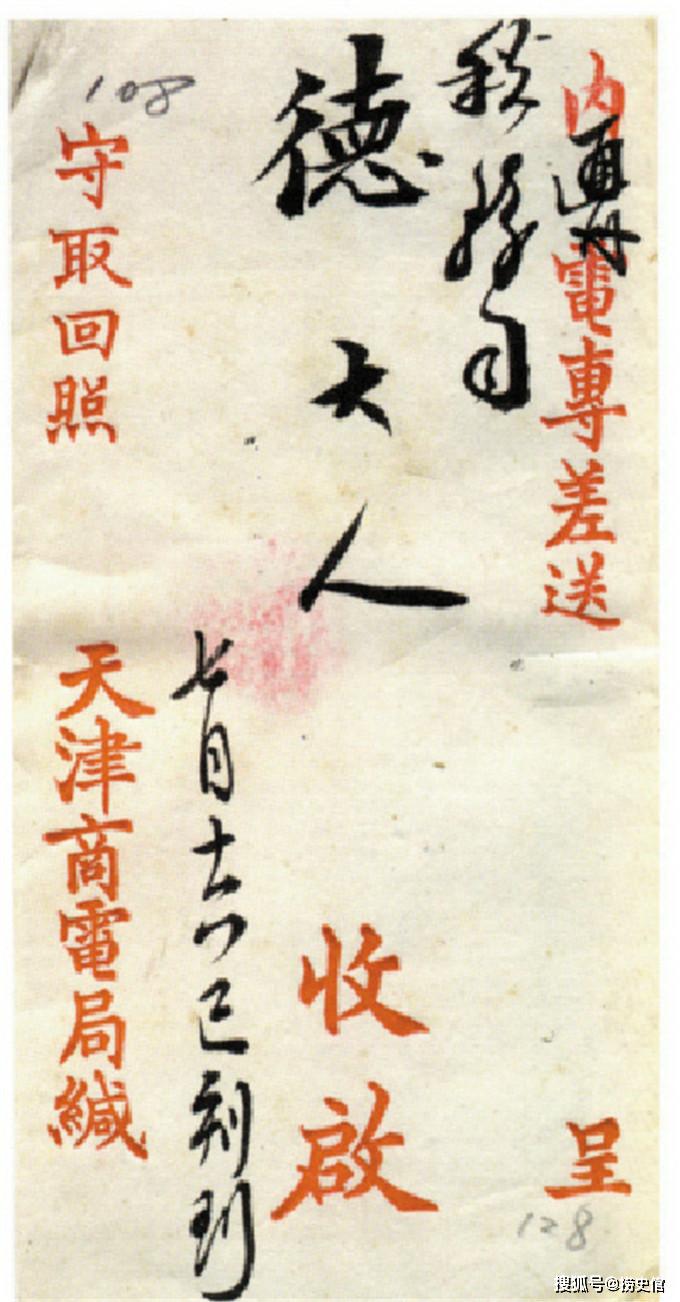 内電專差送
呈
税務司
德大人
收啟
七月十六日巳刻到
108
守取回照
天津商電局緘
128
搜狐号@捞史馆